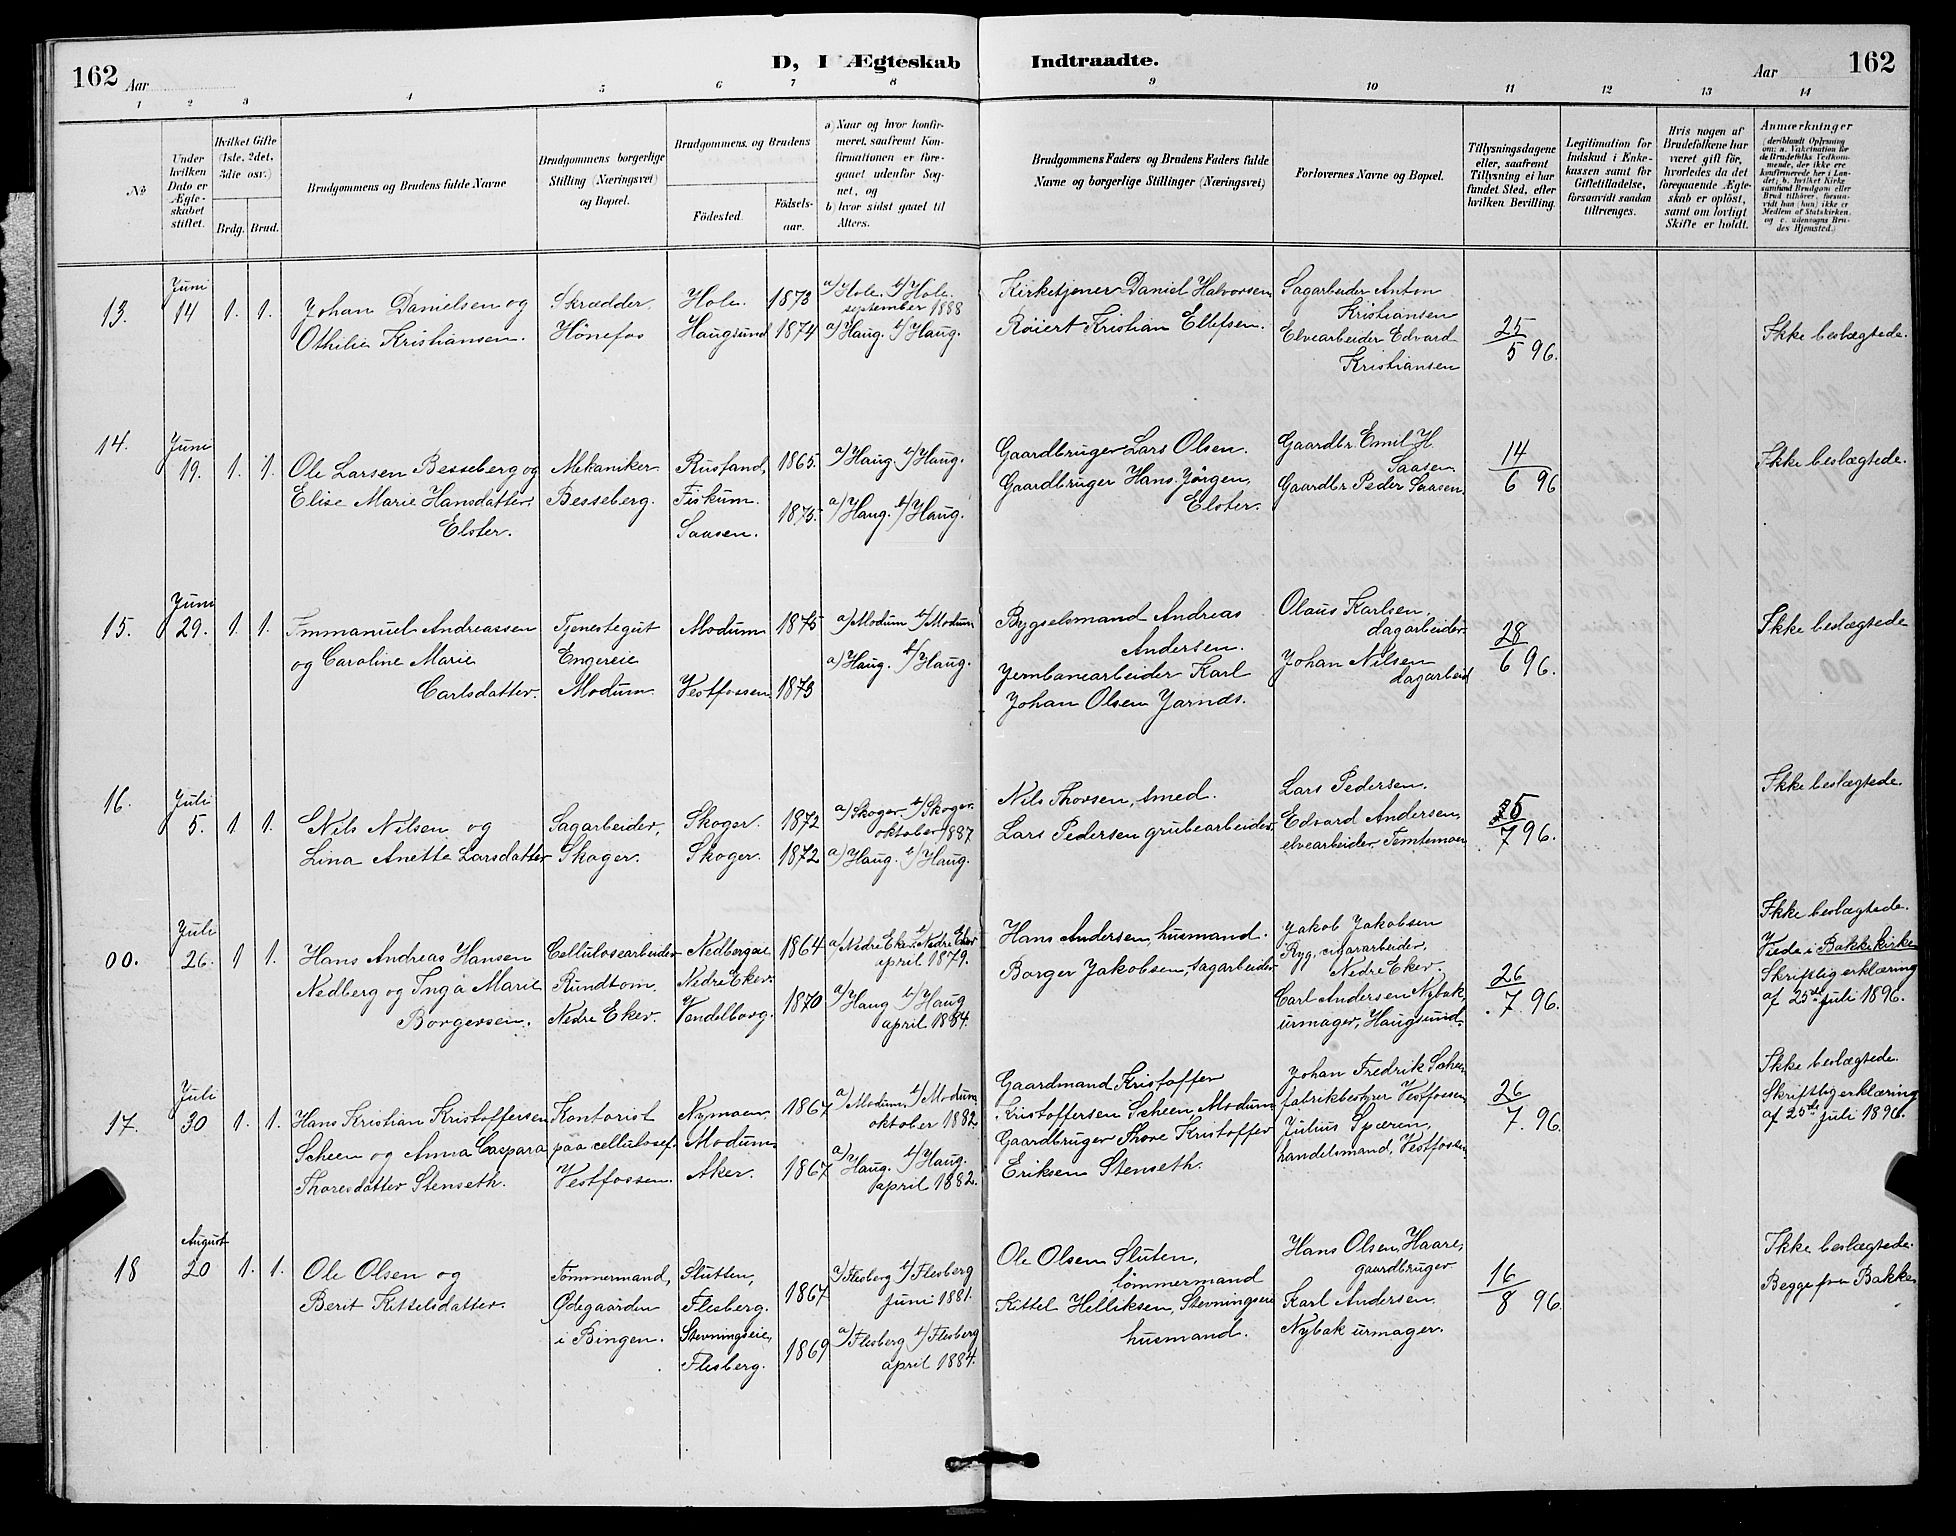 162 Aar D, I Ægteskab Indtraadte. Aar 162
1 2 3 4 5 6 7 8 9 10 11 12 13 14
No
Under hvilken Dato er Ægteskabet stiftet.
Hvilket Gifte (1ste, 2det, 3die osv.)
Brdg. Brud.
Brudgommens og Brudens fulde Navne
Brudgommens borgerlige Stilling (Næringsvei) og Bopæl.
Brudgommens og Brudens
Fødested. Fødselsaar.
a) Naar og hvor konfirmeret, saafremt Konfirmationen er foregaaet udenfor Sognet, og
b) hvor sidst gaaet til Alters.
Brudgommens Faders og Brudens Faders fulde Navne og borgerlige Stillinger (Næringsvei)
Forlovernes Navne og Bopæl.
Tillysningsdagene eller, saafremt Tillysning ei har fundet Sted, efter hvilken Bevilling.
Legitimation for Indskud i Enkekassen samt for Giftetilladelse, forsaavidt saadan tiltrænges.
Hvis nogen af Brudefolkene har været gift før, hvorledes da det foregaaende Ægteskab er opløst, samt om lovligt Skifte er holdt.
Anmærkninger (deriblandt Oplysning om: a. Vakcination for de Brudefolks Vedkommende, der ikke ere konfirmerede her i Landet; b. hvilket Kirkesamfund Brudgom eller Brud tilhører, forsaavidt han (hun) ikke er Medlem af Statskirken, og c. udensogns Brudes Hjemsted.)
13. Juni 14 1. 1.
Johan Danielsen og
Othilie Kristiansen.
Skrædder.
Hönefos
Hole. 1873
Haugsund 1874
a/Hole. b/Hole.
september 1888
a/Haug. b/Haug.
Kirketjener Daniel Halvorsen
Röiert Kristian Ellefsen.
Sagarbeider Anton
Kristiansen
Elvearbeider Edvard
Kristiansen
25/5 96.
Ikke beslægtede.
14. Juni 19. 1. 1.
Ole Larsen Besseberg og
Elise Marie Hansdatter
Elster.
Mekaniker
Besseberg.
Rusfand, 1865.
Fiskum.
Saasen. 1875.
a/Haug. b/Haug.
a/Haug. b/Haug.
Gaardbruger Lars Olsen.
Gaardbruger Hans Jörgen
Elster.
Gaardbr. Emil H.
Saasen
Gaardbr Peder Saasen
14/6 96
Ikke beslægtede.
15. Juni 29. 1. 1.
Immanuel Andreassen
og Caroline Marie
Carlsdatter.
Tjenestegut
Engereie
Modum
Modum 1875
Vestfossen 1873
a/Modum b/Modum
a/Haug. b/Haug.
Bygselsmand Andreas
Andersen.
Jernbanearbeider Karl
Johan Olsen Jarnds.
Olaus Karlsen,
dagarbeider
Johan Nilsen
dagarbeid
28/6 96.
Ikke beslægtede
16. Juli 5. 1. 1.
Nils Nilsen og
Lina Anette Larsdatter
Sagarbeider,
Skoger.
Skoger. 1872
Skoger. 1872
a/Skoger. b/Skoger.
oktober 1887
a/Haug. b/Haug.
Nils Thorsen, smed.
Lars Pedersen grubearbeider
Lars Pedersen.
Edvard Andersen,
elvearbeider Temtemoen
5/7 96.
Ikke beslægtede
00. Juli 26. 1 1
Hans Andreas Hansen
Nedberg og Inga Marie
Borgersen.
Cellulosearbeider
Rundtom.
Nedre Eker.
Nedbergeie 1864
Nedre Eker.
Vendelborg. 1870
a/Nedre Eker. b/Nedre Eker
april 1879.
a/Haug b/Haug
april 1884.
Hans Andersen, husmand.
Borger Jakobsen, sagarbeider
Jakob Jakobsen
Ryg, cigararbeider,
Nedre Eker.
Carl Andersen Nybak,
urmager, Haugsund.
26/7. 96.
Ikke beslægtede.
Viede i Bakke kirke
Skriftlig erklæring
af 25de juli 1896.
17. Juli 30 1. 1.
Hans Kristian Kristoffersen
Scheen og Anna Caspara
Thoresdatter Stenseth.
Kontorist
paa cellulosef.
Vestfossen.
Nymoen 1867
Modum
Aker. 1867
a/Modum, b/Modum
oktober 1882
a/Haug. b/Haug.
april 1882.
Gaardmand Kristoffer
Kristoffersen Scheen, Modum
Gaardbruger Thore Kristoffer
Eriksen Stenseth.
Johan Fredrik Scheen
fabrikbestyrer Vestfossen
Julius Spæren,
handelsmand, Vestfossen
26/7. 96.
Ikke beslægtede.
Skriftlig erklæring
af 25de juli 1896.
18 August 20 1. 1.
Ole Olsen og
Berit Kittelsdatter.
Tömmermand,
Ødegaarden
i Bingen.
Slutten, 1867
Flesberg.
Stevningseie,
Flesberg. 1869
a/Flesberg b/Flesberg
Juni 1881.
a/Flesberg b/Flesberg
april 1884.
Ole Olsen Sluten,
tömmermand
Kittel Helliksen, Stevningseie
husmand.
Hans Olsen, Haare,
gaardbruger
Karl Andersen
Nybak urmager.
16/8 96.
Ikke beslægtede.
Begge fra Bakke